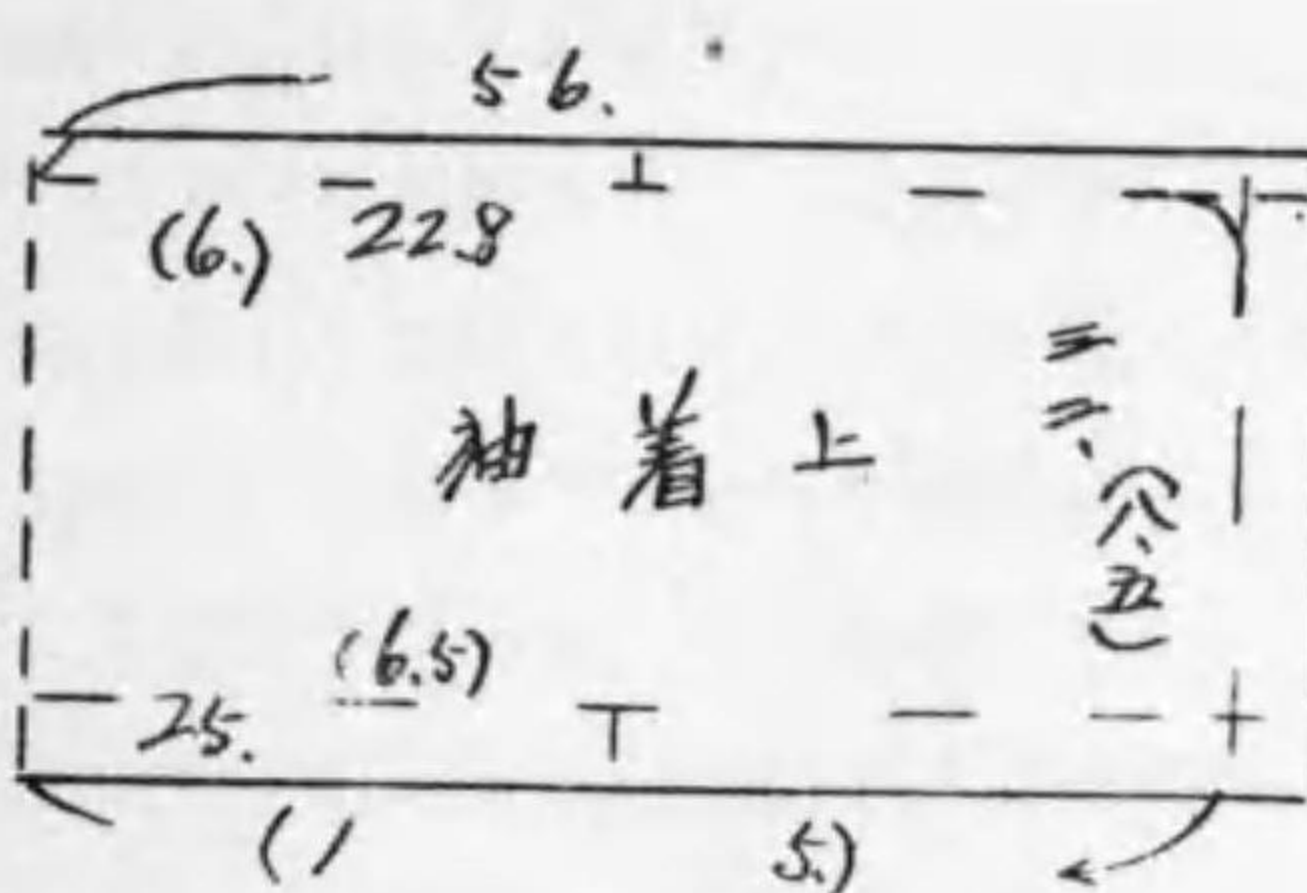 56.
(6.) 22.8
袖着上
三二、(八、五)
25. (6.5)
(15.)